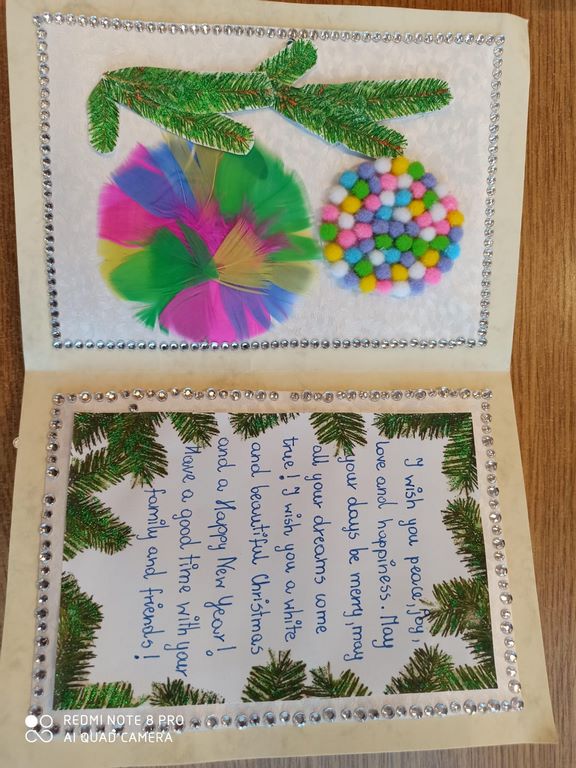 I wish you peace, joy,
love and happiness. May
your days be merry, may
all your dreams come
true! I wish you a white
and beautiful Christmas
and a Happy New Year!
Have a good time with your
family and friends!
REDMI NOTE 8 PRO
AI QUAD CAMERA